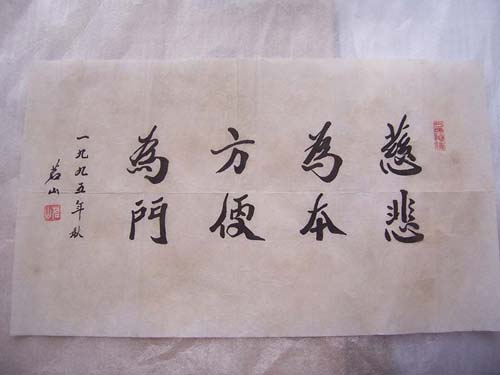 慈悲
為本
方便
為門
一九九五年秋
茗山